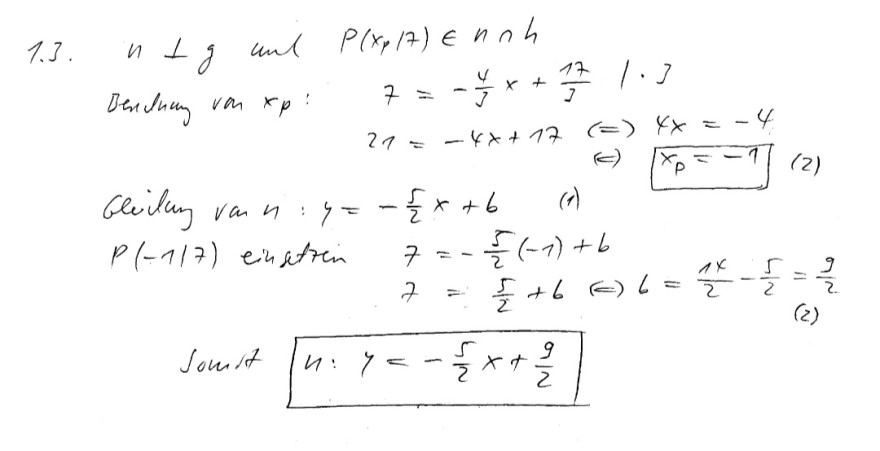 1.3. n ⊥ g und P(xₚ/7) ∈ n ∩ h
Berechnung von xₚ: 7 = -4/3 x + 17/3 | · 3
21 = -4x + 17 (=) 4x = -4
(=) xₚ = -1 (2)
Gleichung von n : y = -5/2 x + b (1)
P(-1/7) einsetzen 7 = -5/2 (-1) + b
7 = 5/2 + b (=) b = 14/2 - 5/2 = 9/2
(2)
Somit n: y = -5/2 x + 9/2